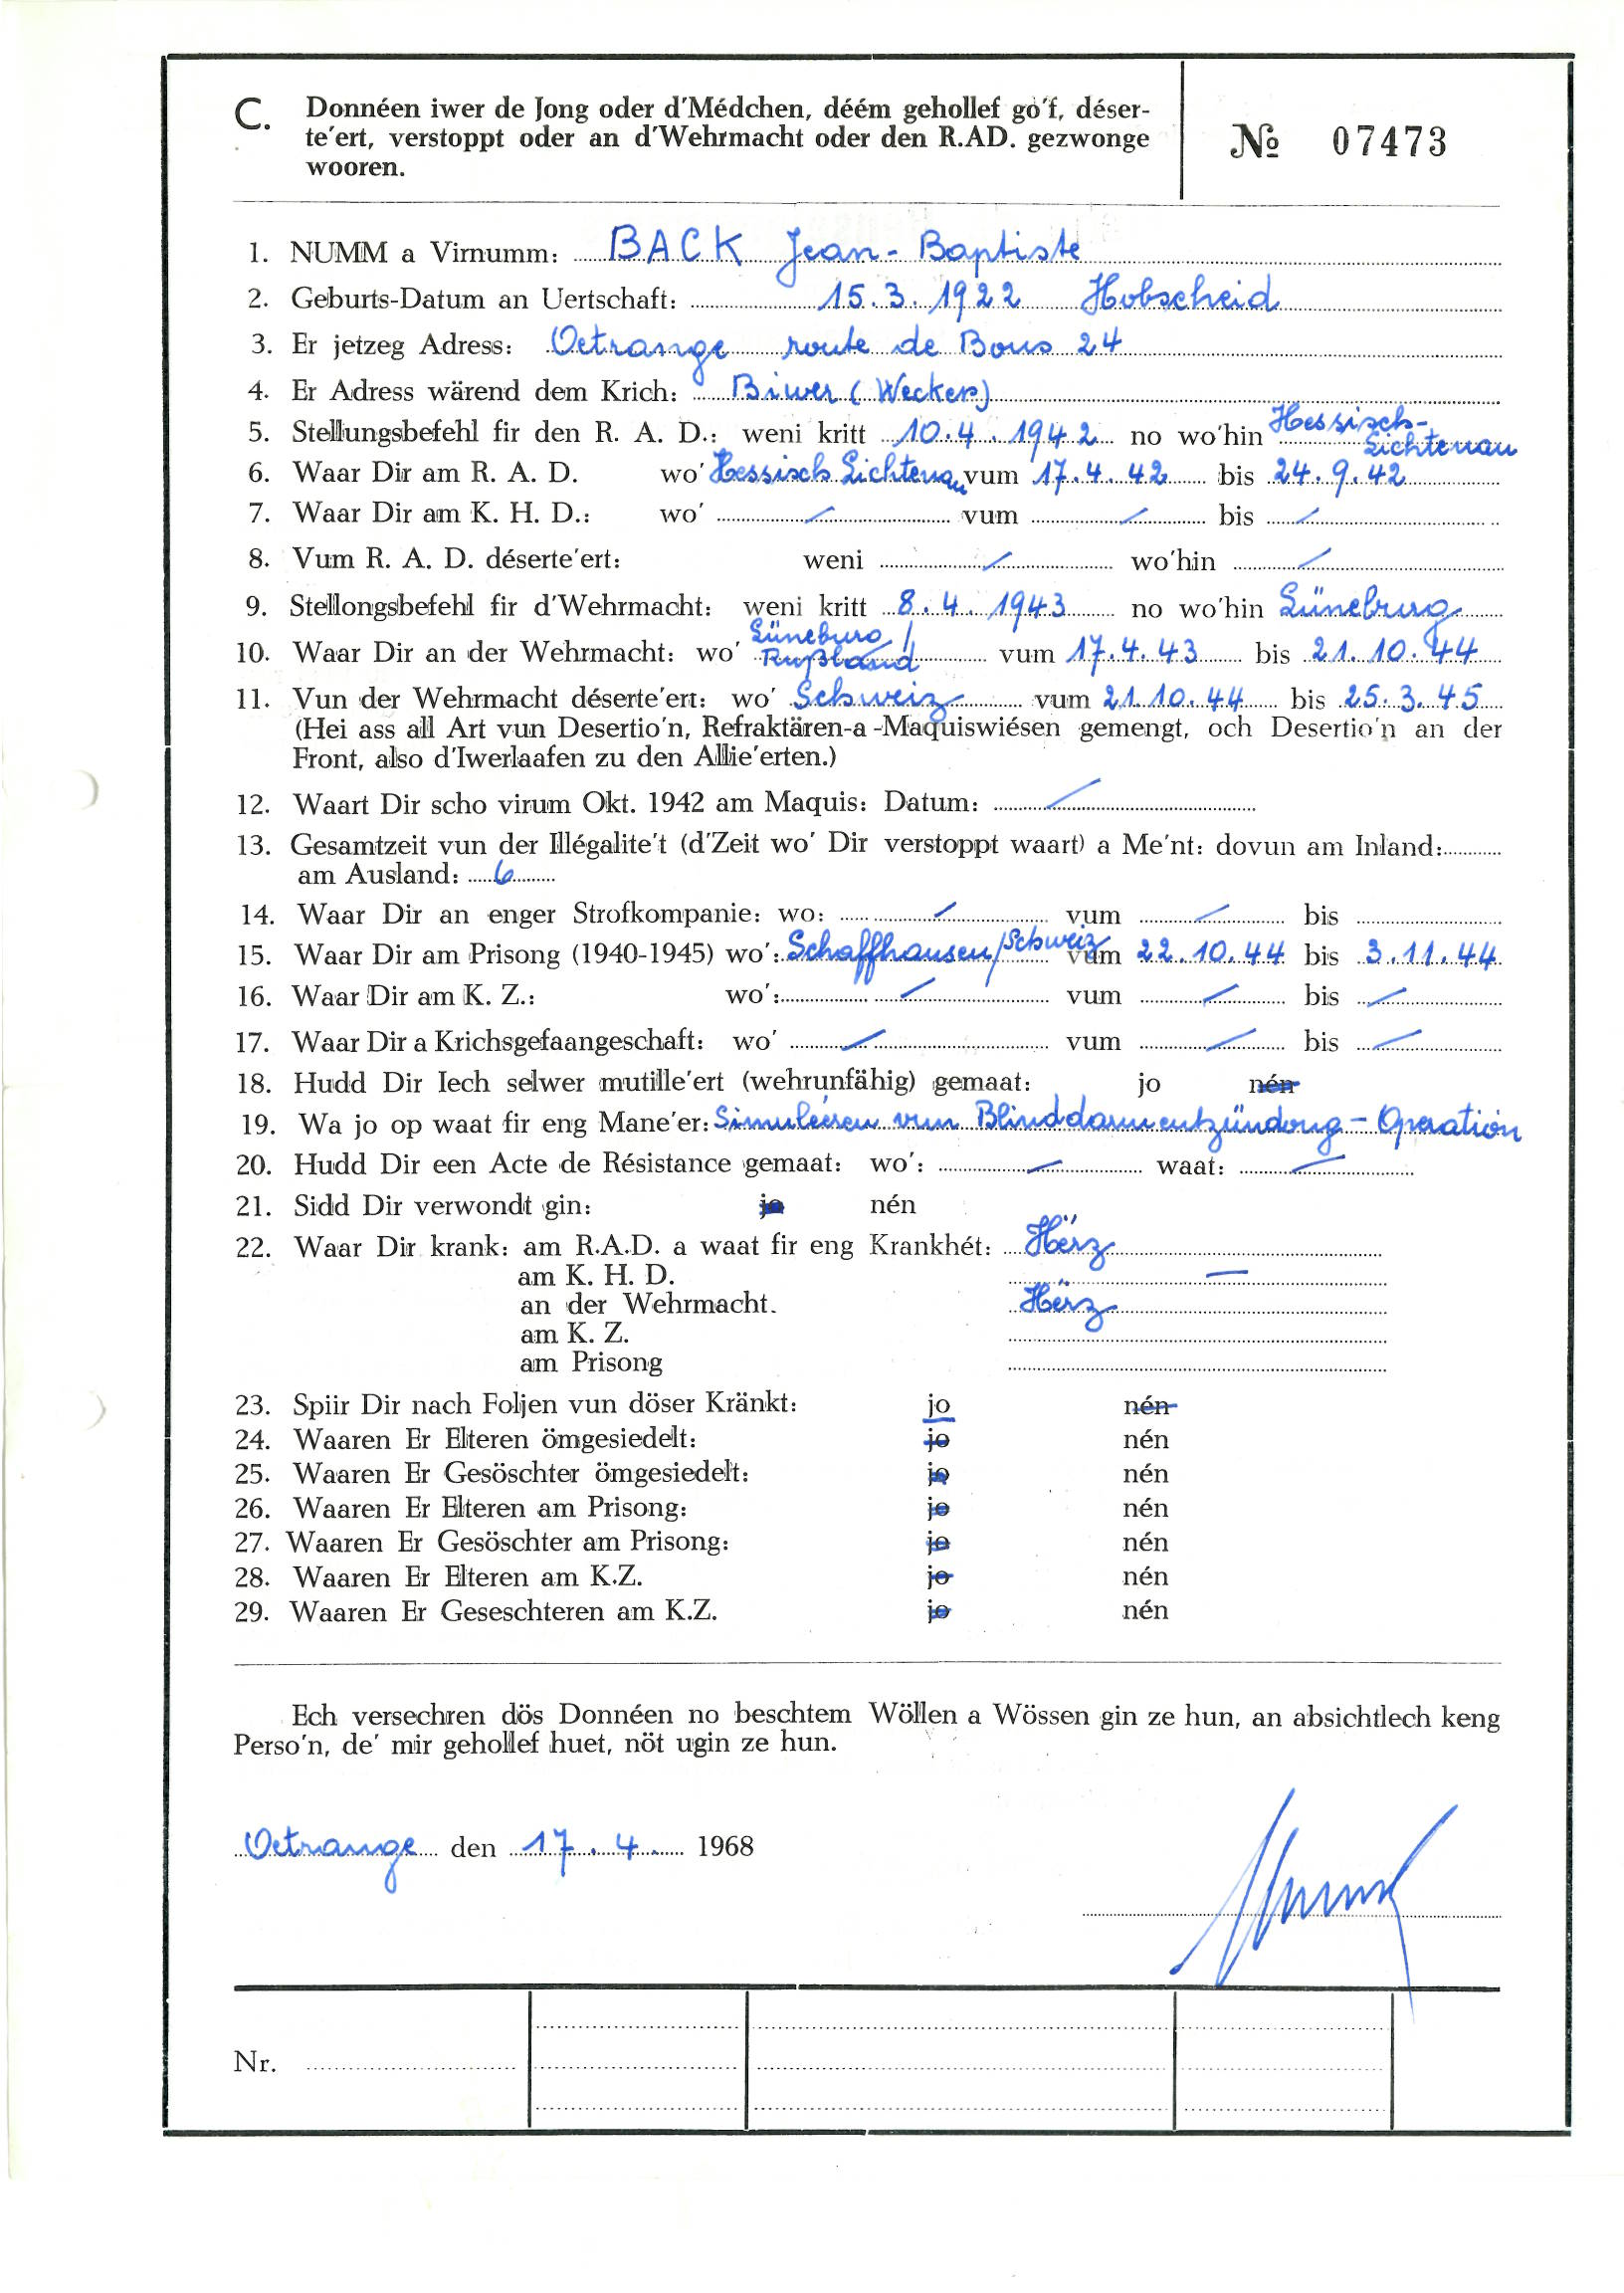 C. Donnéen iwer de Jong oder d'Médchen, déém gehollef go'f, déser-
te'ert, verstoppt oder an d'Wehrmacht oder den R.AD. gezwonge
wooren.
№ 07473
1. NUMM a Virnumm: BACK Jean-Baptiste
2. Geburts-Datum an Uertschaft: 15.3.1922 Hobscheid
3. Er jetzeg Adress: Oetrange route de Bous 24
4. Er Adress wärend dem Krich: Biwer (Wecker)
5. Stellungsbefehl fir den R. A. D.: weni kritt 10.4.1942 no wo'hin Hessisch-
Lichtenau
6. Waar Dir am R. A. D. wo' Hessisch Lichtenau vum 17.4.42 bis 24.9.42
7. Waar Dir am K. H. D.: wo' / vum / bis /
8. Vum R. A. D. déserte'ert: weni / wo'hin /
9. Stellongsbefehl fir d'Wehrmacht: weni kritt 8.4.1943 no wo'hin Lüneburg
10. Waar Dir an der Wehrmacht: wo' Lüneburg / Rußland vum 17.4.43 bis 21.10.44
11. Vun der Wehrmacht déserte'ert: wo' Schweiz vum 21.10.44 bis 25.3.45
(Hei ass all Art vun Desertio'n, Refraktären-a-Maquiswiésen gemengt, och Desertio'n an der
Front, also d'Iwerlaafen zu den Allie'erten.)
12. Waart Dir scho virum Okt. 1942 am Maquis: Datum: /
13. Gesamtzeit vun der Illégalite't (d'Zeit wo' Dir verstoppt waart) a Me'nt: dovun am Inland:
am Ausland: 6
14. Waar Dir an enger Strofkompanie: wo: / vum / bis
15. Waar Dir am Prisong (1940-1945) wo': Schaffhausen/Schweiz vum 22.10.44 bis 3.11.44
16. Waar Dir am K. Z.: wo': / vum / bis /
17. Waar Dir a Krichsgefaangeschaft: wo' / vum / bis /
18. Hudd Dir Iech selwer mutille'ert (wehrunfähig) gemaat: jo nén
19. Wa jo op waat fir eng Mane'er: Simuléieren vun Blinddarmentzündong - Operation
20. Hudd Dir een Acte de Résistance gemaat: wo': — waat: —
21. Sidd Dir verwondt gin: jo nén
22. Waar Dir krank: am R.A.D. a waat fir eng Krankhét: Hërz
am K. H. D. —
an der Wehrmacht. Hërz
am K. Z.
am Prisong
23. Spiir Dir nach Foljen vun döser Kränkt: jo nén
24. Waaren Er Elteren ömgesiedelt: jo nén
25. Waaren Er Gesöschter ömgesiedelt: jo nén
26. Waaren Er Elteren am Prisong: jo nén
27. Waaren Er Gesöschter am Prisong: jo nén
28. Waaren Er Elteren am K.Z. jo nén
29. Waaren Er Geseschteren am K.Z. jo nén
Ech versechren dös Donnéen no beschtem Wöllen a Wössen gin ze hun, an absichtlech keng
Perso'n, de' mir gehollef huet, nöt ugin ze hun.
Oetrange den 17.4. 1968
Nr.